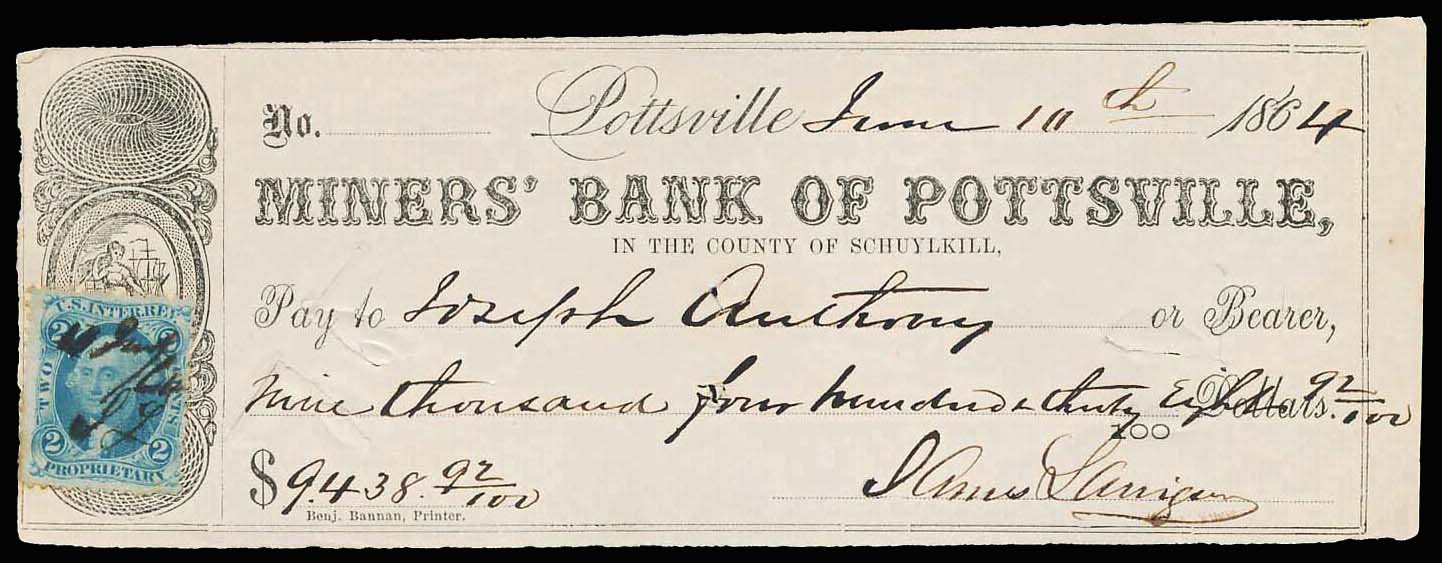 No. Pottsville June 10th 1864
MINERS' BANK OF POTTSVILLE,
IN THE COUNTY OF SCHUYLKILL,
Pay to Joseph Anthony or Bearer,
Nine thousand four hundred & thirty Eight Dollars. 92/100
100
$ 9.438. 92/100
James Lanigan
Benj. Bannan, Printer.
U.S. INTER. REV.
2 2
TWO CTS.
2 2
PROPRIETARY